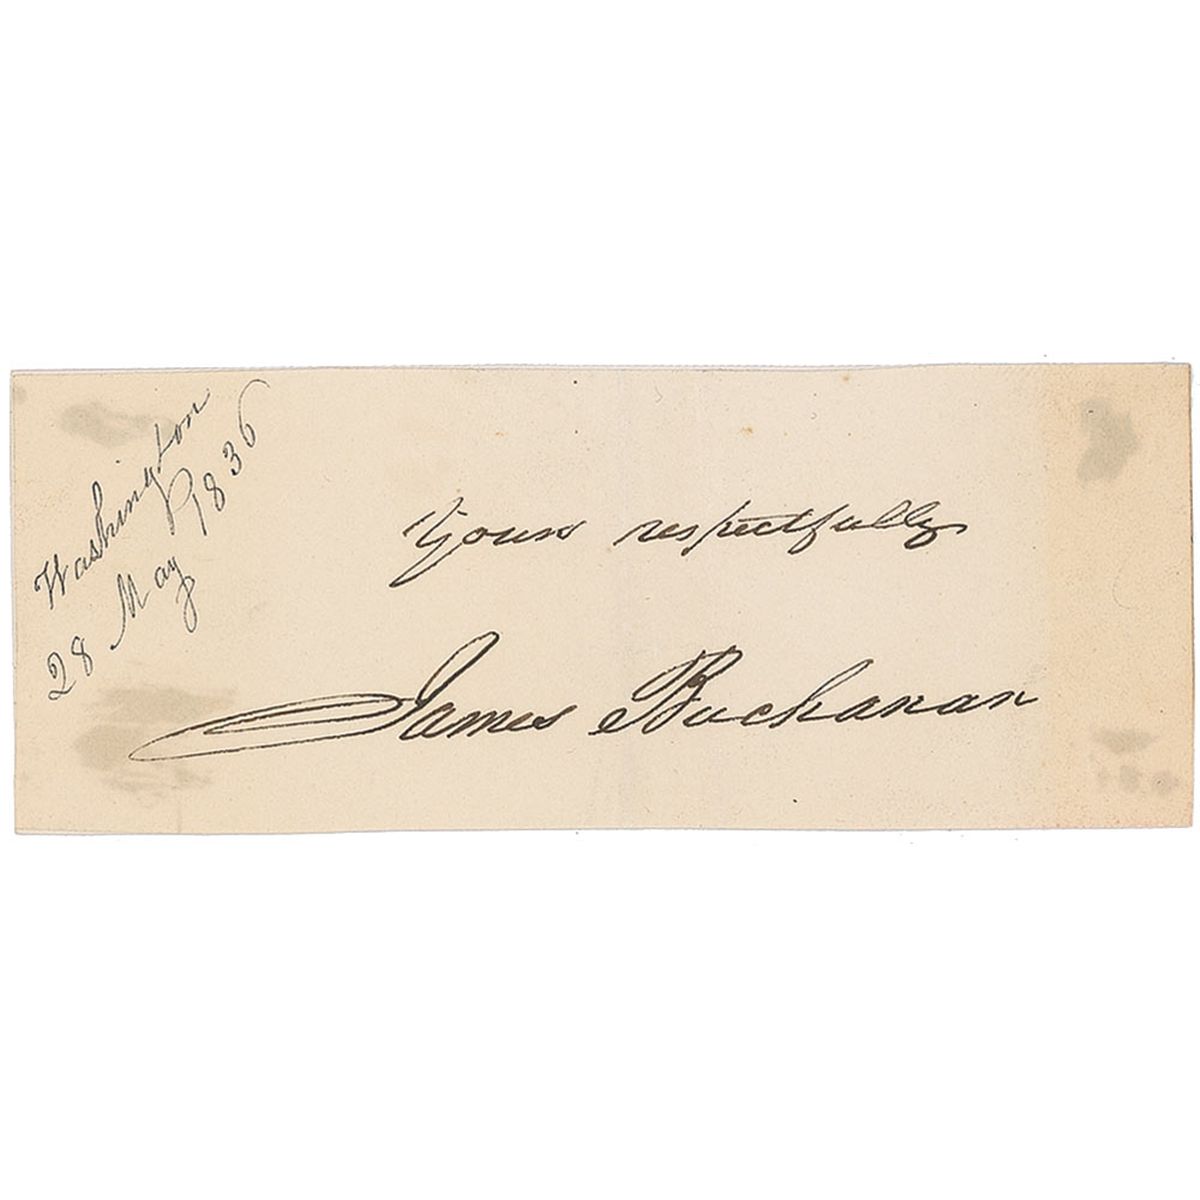 Washington
28 May 1836
Yours respectfully
James Buchanan